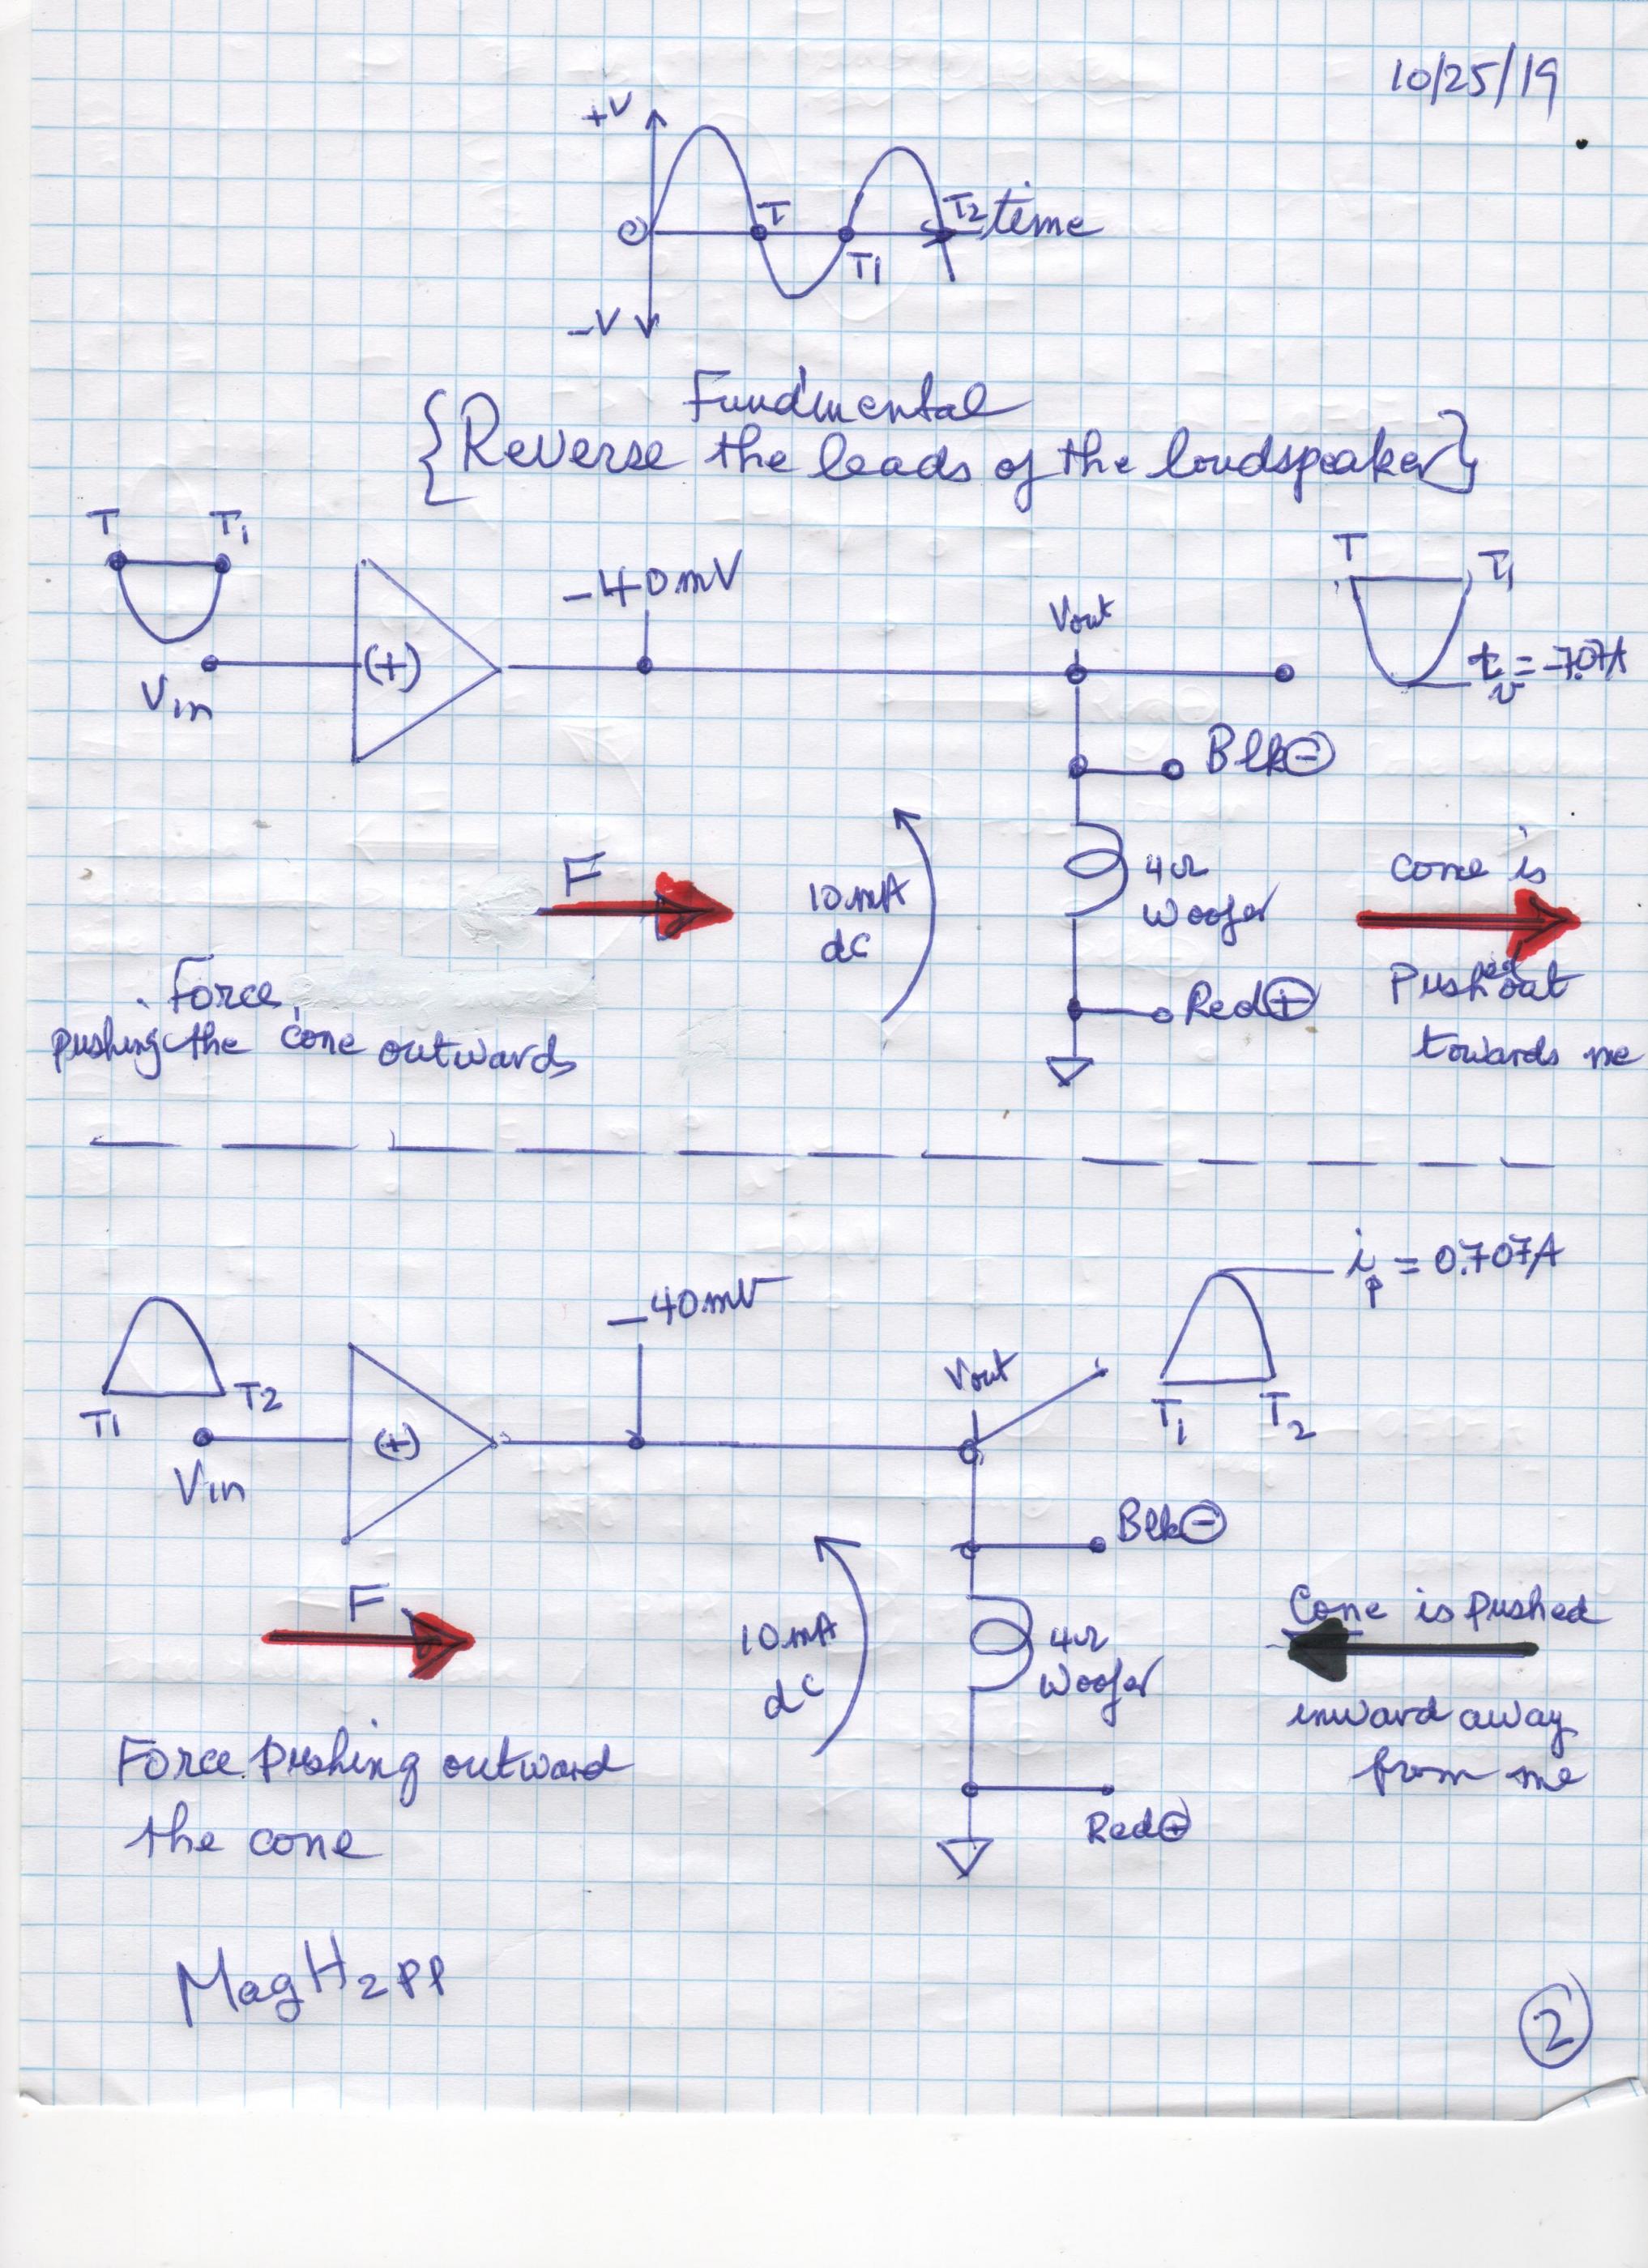 10/25/19
+V
T
T2
time
O
T1
-V
Fundmental
{Reverse the leads of the loudspeaker}
T T1
-40mV
Vout
T T1
(+)
Vin
= -.707A
Blk⊖
F
10mA
dc
4Ω
Woofer
cone is
Pushed out
towards me
Force
pushing the cone outwards
Red⊕
ip = 0.707A
-40mV
Vout
T1 T2
T1 T2
(+)
Vin
Blk⊖
F
10mA
dc
4Ω
Woofer
Cone is pushed
inward away
from me
Force pushing outward
the cone
Red⊕
MagH2PP
2